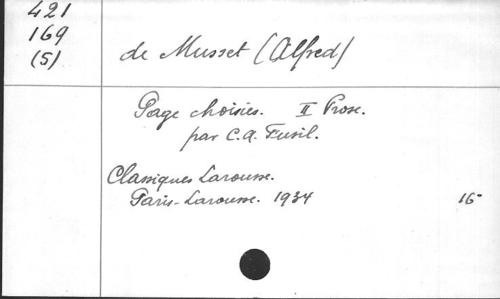 421
169
(5)
de Musset (Alfred)
Page choisies. II Prose.
par C.A. Fusil.
Classiques Larousse.
Paris-Larousse. 1934 16-